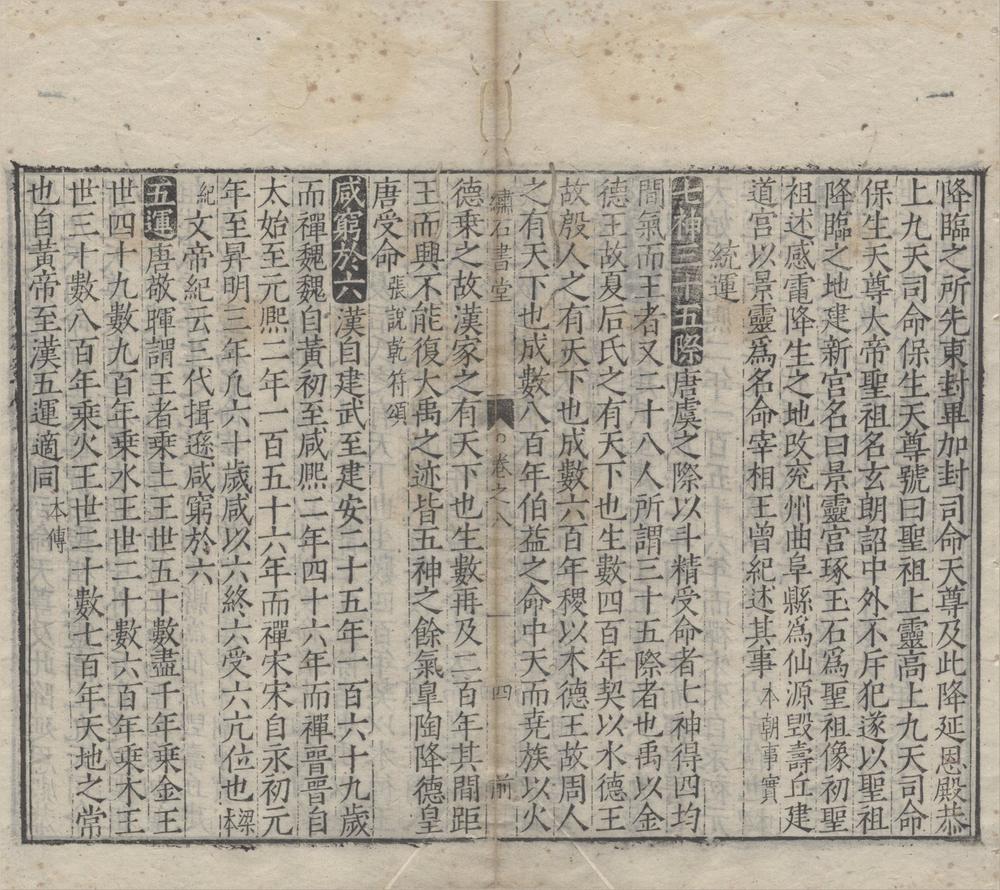 降臨之所先東封畢加封司命天尊及此降延恩殿恭
上九天司命保生天尊號曰聖祖上靈高上九天司命
保生天尊大帝聖祖名玄朗詔中外不斥犯遂以聖祖
降臨之地建新宮名曰景靈宮琢玉石爲聖祖像初聖
祖述感電降生之地改兖州曲阜縣爲仙源毀壽丘建
道宮以景靈爲名命宰相王曾紀述其事本朝事實
統運
七神三十五際唐虞之際以斗精受命者七神得四均
間氣而王者又二十八人所謂三十五際者也禹以金
德王故夏后氏之有天下也生數四百年契以水德王
故殷人之有天下也成數六百年稷以木德王故周人
之有天下也成數八百年伯益之命中天而堯族以火
繡石書堂 卷之八 一 四 前
德乘之故漢家之有天下也生數再及二百年其間距
王而興不能復大禹之迹皆五神之餘氣皐陶降德皇
唐受命張說乾符頌
咸窮於六漢自建武至建安二十五年一百六十九歲
而禪魏魏自黃初至咸熙二年四十六年而禪晉晉自
太始至元熙二年一百五十六年而禪宋宋自永初元
年至昇明三年凡六十歲咸以六終六受六亢位也梁本
紀文帝紀云三代揖遜咸窮於六
五運唐敬暉謂王者乘土王世五十數盡千年乘金王
世四十九數九百年乘水王世二十數六百年乘木王
世三十數八百年乘火王世二十數七百年天地之常
也自黃帝至漢五運適同本傳